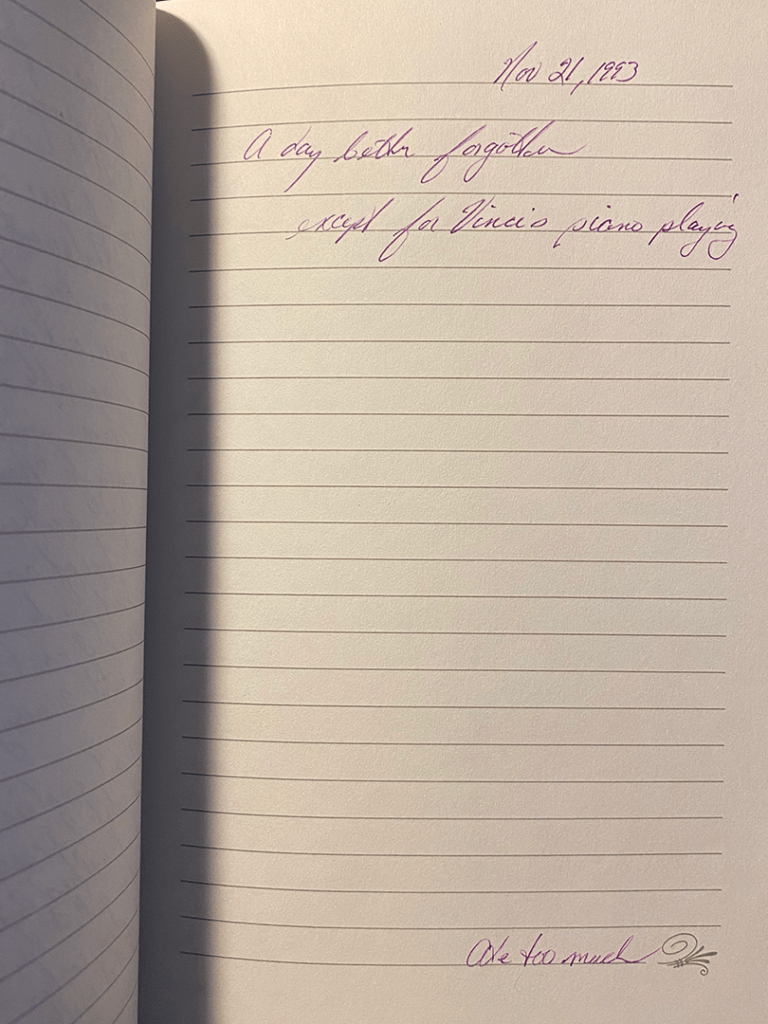 Nov 21, 1993
A day better forgotten
except for Vinci's piano playing
Ate too much